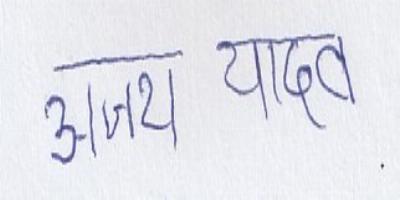 अजय यादव